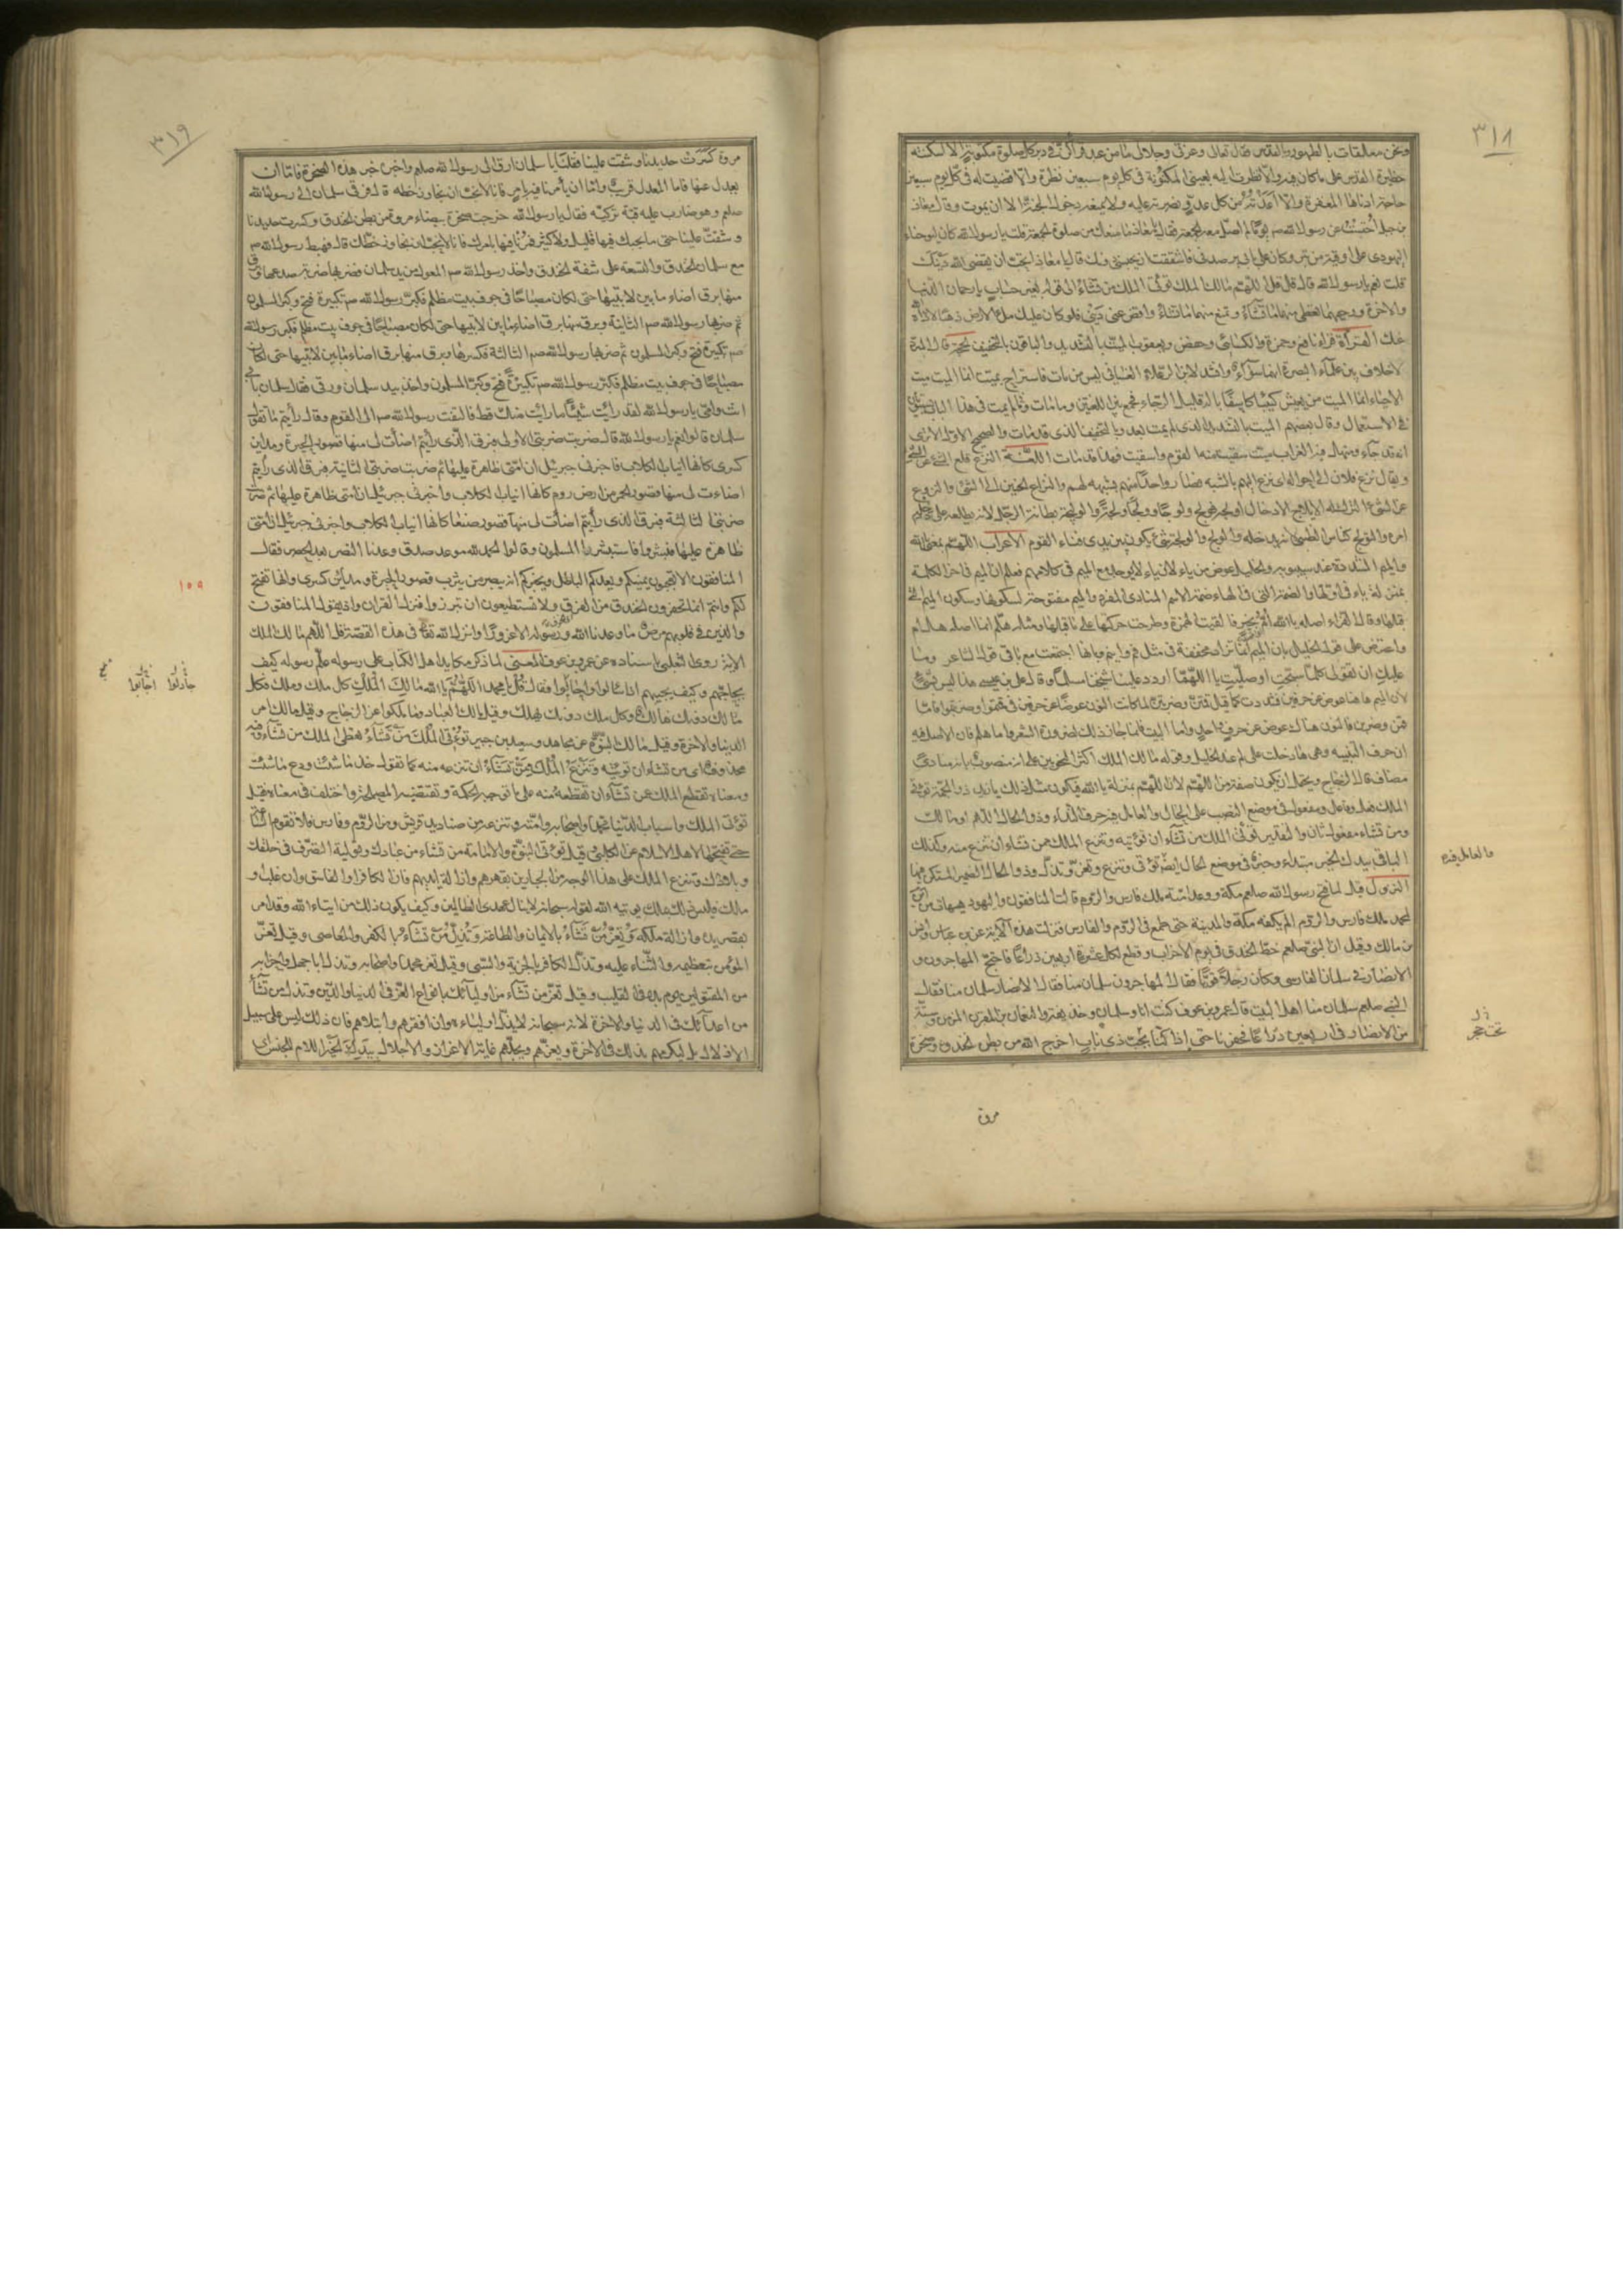 ٣١٨
ونحن معلقات بالطهور وبالقدس فقال تعالى وعزتي وجلالي ما من عبد قرأكن في دبر كل صلوة مكتوبة الا اسكنته
حظيرة القدس على ما كان فيه والا نظرت اليه بعيني المكنونة في كل يوم سبعين نظرة والا قضيت له في كل يوم سبعين
حاجة ادناها المغفرة والا اعذته من كل عدو ونصرته عليه ولا يمنعه دخول الجنة الا ان يموت وقال معاذ
بن جبل احتبست عن رسول الله صم يوما لم اصل معه الجمعة فقال يا معاذ ما منعك من صلوة الجمعة قلت يا رسول الله كان ليوحناء
اليهودي على اوقية من تبر وكان على بابي يرصدني فاشفقت ان يحبسني دونك قال يا معاذ اتحب ان يقضي الله دينك
قلت نعم يا رسول الله قال قل اللهم مالك الملك تؤتي الملك من تشاء الى قوله بغير حساب يا رحمان الدنيا
والاخرة ورحيمهما تعطي منهما ما تشاء وتمنع منهما ما تشاء واقض عني ديني فلو كان عليك ملء الارض ذهبا لاداه الله
عنك القراءة قراء نافع وحمزة والكسائي وحفص ويعقوب الميت بالتشديد والباقون بالتخفيف الحجة قال المبرد
لا خلاف بين علماء البصرة انهما سواء وانشد لابن الرعلاء الغساني ليس من مات فاستراح بميت انما الميت ميت
الاحياء انما الميت من يعيش كئيبا كاسفا باله قليل الرجاء فجمع بين اللغتين وما مات وما لم يمت في هذا الباب يستويان
في الاستعمال وقال بعضهم الميت بالتشديد الذي لم يمت بعد وبالتخفيف الذي قد مات والصحيح الاول الا ترى
انه قد جاء ومنهل فيه الغراب ميت سقيت منه القوم واستقيت فهذا قد مات اللغة النزع قلع الشئ عن الشئ
ويقال نزع فلان الى اخواله اي نزع اليهم بالشبه فصار واحدا منهم بشبهه لهم والنزاع الحنين الى الشئ والنزوع
عن الشئ الترك له الايلاج الادخال
امره والتولج كناس الظبي لانه يدخله والولج والولجة شئ يكون بين يدي فناء القوم الاعراب اللهم بمعنى يا الله
والميم المشددة عند سيبويه والخليل عوض من ياء لان ياء لا يوجد مع الميم في كلامهم فعلم ان الميم في اخر الكلمة
بمنزلة ياء في اولها والضمة التي في الهاء ضمة الاسم المنادى المفرد والميم مفتوحة لسكونها وسكون الميم التي
قبلها وقال الفراء اصله يا الله ام بخير فالقيت الهمزة وطرحت حركتها على ما قبلها ومثله هلم انما اصله هل ام
واعترض على قول الخليل بان الميم انما تزاد مخففة في مثل فم وابنم وبانها اجتمعت مع يا في قول الشاعر وما
عليك ان تقولي كلما سبحت او صليت يا اللهما اردد علينا شيخنا مسلما وقال علي بن عيسى هذا ليس بشئ
لان الميم هاهنا عوض عن حرفين فشددت كما قيل قمتن وضربتن لما كانت النون عوضا عن حرفين في قمتموا وضربتموا فاما
قمن وضربن فالنون هناك عوض عن حرف واحد واما البيت فانما جاز ذلك لضرورة الشعر واما هلم فان الاصل فيه
ان حرف التنبيه وهي ها دخلت على لم عند الخليل وقوله مالك الملك اكثر النحويين على انه منصوب بانه منادى
مضاف قال الزجاج ويحتمل ان يكون صفة من اللهم لان اللهم بمنزلة يا الله فيكون مثل ذلك يا زيد ذو الجمة تؤتي
الملك فعل وفاعل ومفعول في موضع النصب على الحال والعامل فيه حرف النداء وذو الحال اللهم او مالك
ومن تشاء مفعول ثان والتقدير تؤتي الملك من تشاء ان تؤتيه وتنزع الملك ممن تشاء ان تنزع منه وكذلك
الباقي بيدك الخير مبتداء وخبر في موضع الحال والعامل فيه
النزول قيل لما فتح رسول الله صلعم مكة ووعد امته ملك فارس والروم قالت المنافقون واليهود هيهات من اين
لمحمد ملك فارس والروم الم يكفه مكة والمدينة حتى طمع في الروم والفارس فنزلت هذه الاية عن ابن عباس وانس
بن مالك وقيل ان النبي صلعم خط الخندق في يوم الاحزاب وقطع لكل عشرة اربعين ذراعا فاحتج المهاجرون و
الانصار في سلمان الفارسي وكان رجلا قويا فقال المهاجرون سلمان منا فقال الانصار سلمان منا فقال
النبي صلعم سلمان منا اهل البيت قال عمرو بن عوف كنت انا وسلمان وحذيفة والنعمان بن المقرن المزني وستة
من الانصار في اربعين ذراعا فحفرنا حتى اذا كنا بجب ذي ناب اخرج الله من بطن الخندق صخرة
مروة
والعامل فيه
تحت حجر
٣١٩
مروة كسرت حديدنا وشقت علينا فقلنا يا سلمان ارق الى رسول الله صلعم واخبره خبر هذه الصخرة فاما ان
يعدل عنها فاما المعدل قريب واما ان يأمرنا فيه بامره فانا لا نحب ان نجاوز خطه قال فرقي سلمان الى رسول الله
صلعم وهو ضارب عليه قبة تركية فقال يا رسول الله خرجت صخرة بيضاء مروة من بطن الخندق وكسرت حديدنا
وشقت علينا حتى ما يحيك فيها قليل ولا كثير فمرنا فيها بامرك فانا لا نحب ان نجاوز خطك قال فهبط رسول الله صم
مع سلمان الخندق والتسعة على شفة الخندق واخذ رسول الله صم المعول من يد سلمان فضربها ضربة صدعها وبرق
منها برق اضاء ما بين لابتيها حتى لكان مصباحا في جوف بيت مظلم فكبر رسول الله صم تكبيرة فتح وكبر المسلمون
ثم ضربها رسول الله صم الثانية وبرق منها برق اضاء ما بين لابتيها حتى لكان مصباحا في جوف بيت مظلم فكبر رسول الله
صم تكبيرة فتح وكبر المسلمون ثم ضربها رسول الله صم الثالثة فكسرها وبرق منها برق اضاء ما بين لابتيها حتى لكان
مصباحا في جوف بيت مظلم فكبر رسول الله صم تكبيرة فتح وكبر المسلمون واخذ بيد سلمان ورقي فقال سلمان بابي
انت وامي يا رسول الله لقد رأيت شيئا ما رأيت منك قط فالتفت رسول الله صم الى القوم وقال رأيتم ما يقول
سلمان قالوا نعم يا رسول الله قال ضربت ضربتي الاولى فبرق الذي رأيتم اضاءت لي منها قصور الحيرة ومداين
كسرى كانها انياب الكلاب فاخبرني جبرئيل ان امتي ظاهرة عليها ثم ضربت ضربتي الثانية فبرق الذي رأيتم
اضاءت لي منها قصور الحمر من ارض روم كانها انياب الكلاب واخبرني جبرئيل ان امتي ظاهرة عليها ثم ضربت
ضربتي الثالثة فبرق الذي رأيتم اضاءت لي منها قصور صنعا كانها انياب الكلاب واخبرني جبرئيل ان امتي
ظاهرة عليها فابشروا فاستبشر المسلمون وقالوا الحمد لله موعد صدق وعدنا النصر بعد الحصر فقال
المنافقون الا تعجبون يمنيكم ويعدكم الباطل ويخبركم انه يبصر من يثرب قصور الحيرة ومداين كسرى وانها تفتح
لكم وانتم انما تحفرون الخندق من الفرق ولا تستطيعون ان تبرزوا فنزل القرآن واذ يقول المنافقون
والذين في قلوبهم مرض ما وعدنا الله ورسوله الا غرورا وانزل الله تعالى في هذه القصة قل اللهم مالك الملك
الاية روى الثعلبي باسناده عن عمرو بن عوف المعنى لما ذكر مكايد اهل الكتاب علم رسوله كيف
يحاجهم وكيف يجيبهم اذا سالوا واجابوا فقال قل يا محمد اللهم يا الله مالك الملك كل ملك وملك فكل
مالك دونك هالك وكل ملك دونك يهلك وقيل مالك العباد وما ملكوا عن الزجاج وقيل مالك امر
الدنيا والاخرة وقيل مالك النبوة عن مجاهد وسعيد بن جبير تؤتي الملك من تشاء تعطي الملك من تشاء وفيه
محذوف اي من تشاء ان تؤتيه وتنزع الملك ممن تشاء ان تنزعه منه كما تقول خذ ما شئت ودع ما شئت
ومعناه تقطع الملك عن من تشاء ان تقطعه عنه على ما توجبه الحكمة وتقتضيه المصلحة واختلف في معناه فقيل
تؤتي الملك واسباب الدنيا محمدا واصحابه وامته وتنزعه من صناديد قريش ومن الروم وفارس فلا تقوم الساعة
حتى يفتحها اهل الاسلام عن الكلبي وقيل تؤتي النبوة والامامة من تشاء من عبادك وتوليه التصرف في خلقك
وبلادك وتنزع الملك على هذا الوجه من الجبارين بقهرهم وازالة ايديهم فان الكافر او الفاسق وان غلب او
ملك فليس ذلك بملك يؤتيه الله لقوله سبحانه لا ينال عهدي الظالمين وكيف يكون ذلك من ايتاء الله وقد امر
بقصر يده وازالة ملكه وتعز من تشاء بالايمان والطاعة وتذل من تشاء بالكفر والمعاصي وقيل تعز
المؤمن بتعظيمه والثناء عليه وتذل الكافر بالجزية والسبي وقيل تعز محمدا واصحابه وتذل ابا جهل واضرابه
من المقتولين يوم بدر في القليب وقيل تعز من تشاء من اوليائك بانواع العز في الدنيا والدين وتذل من تشاء
من اعدائك في الدنيا والاخرة لانه سبحانه لا يذل اولياءه وان افقرهم وابتلاهم فان ذلك ليس على سبيل
الاذلال بل ليكرمهم بذلك في الاخرة ويعزهم ويجلهم غاية الاعزاز والاجلال بيدك الخير اللام للجنس اي
١٥٩
جادلوا اجابوا